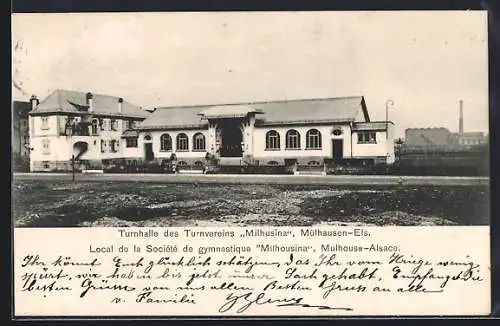 Turnhalle des Turnvereins „Milhusina“, Mülhausen-Els.
Local de la Société de gymnastique "Milhousina", Mulhouse-Alsace.
Ihr könnt Euch glücklich schätzen, das Ihr vom Kriege wenig
spürt, wir haben bis jetzt unser Sach gehabt, Empfanget die
besten Grüsse von uns allen Besten Gruss an alle
v. Familie